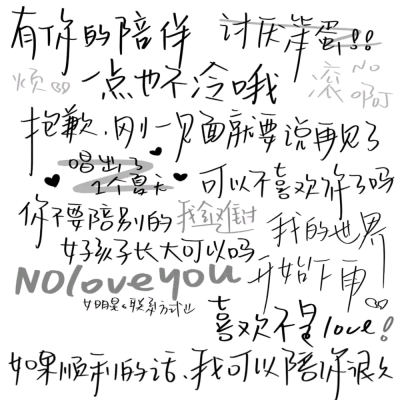 有你的陪伴 讨厌笨蛋!!
烦 一点也不冷哦 滚 NO 啊
抱歉,刚一见面就要说再见了
唱出了
2个夏天 可以不喜欢你了吗
你不要陪别的 我的世界
好孩子长大可以吗
NO love you 开始下雨
女明星の联系方式
喜欢不是love!
如果顺利的话、我可以陪你很久